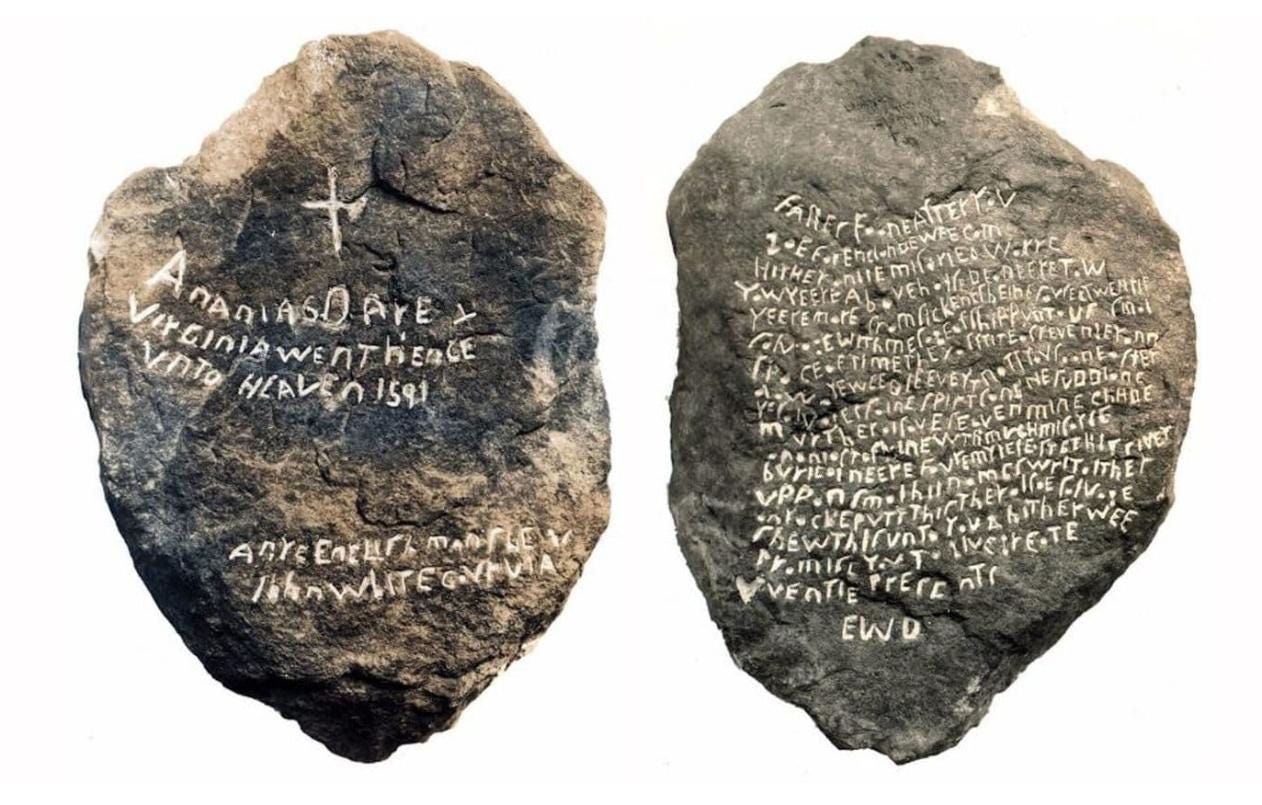 ANANIAS DARE &
VIRGINIA WENT HENCE
VNTO HEAVEN 1591
ANYE ENGLISHMAN SHEW
JOHN WHITE GOVR VIA
FATHER SOONE AFTER YOV
GOE FOR ENGLANDE WEE CAM
HITHER ONLIE MISARIE & WARRE
TOW YEERE ABOVE HALFE DEADE ERE TOW
YEERE MORE FROM SICKENES BEINE FOVRE & TWENTIE
SALVAGE WITH MESAGE OF SHIPP VNTO VS SMAL
SPACE OF TIME THEY AFFRITE OF REVENGE RANN
AL AWAYE WEE BLEEVE YT NOTT YOV SOONE AFTER
YE SALVAGES FAINE SPIRTS ANGRIE SVDDIANE
MVRTHER AL SAVE SEAVEN MINE CHILDE
ANANIAS TO SLAINE WTH MVCH MISARIE
BVRIED AL NEERE FOVRE MYLES EASTE THIS RIVER
VPPON SMAL HIL NAMES WRIT AL THER
ON ROCKE PVTT THIS THER ALSOE SALVAGE
SHEW THIS VNTO YOV & HITHER WEE
PROMISE YOV TO GIVE GREATE
PLENTIE PRESENTS
EWD